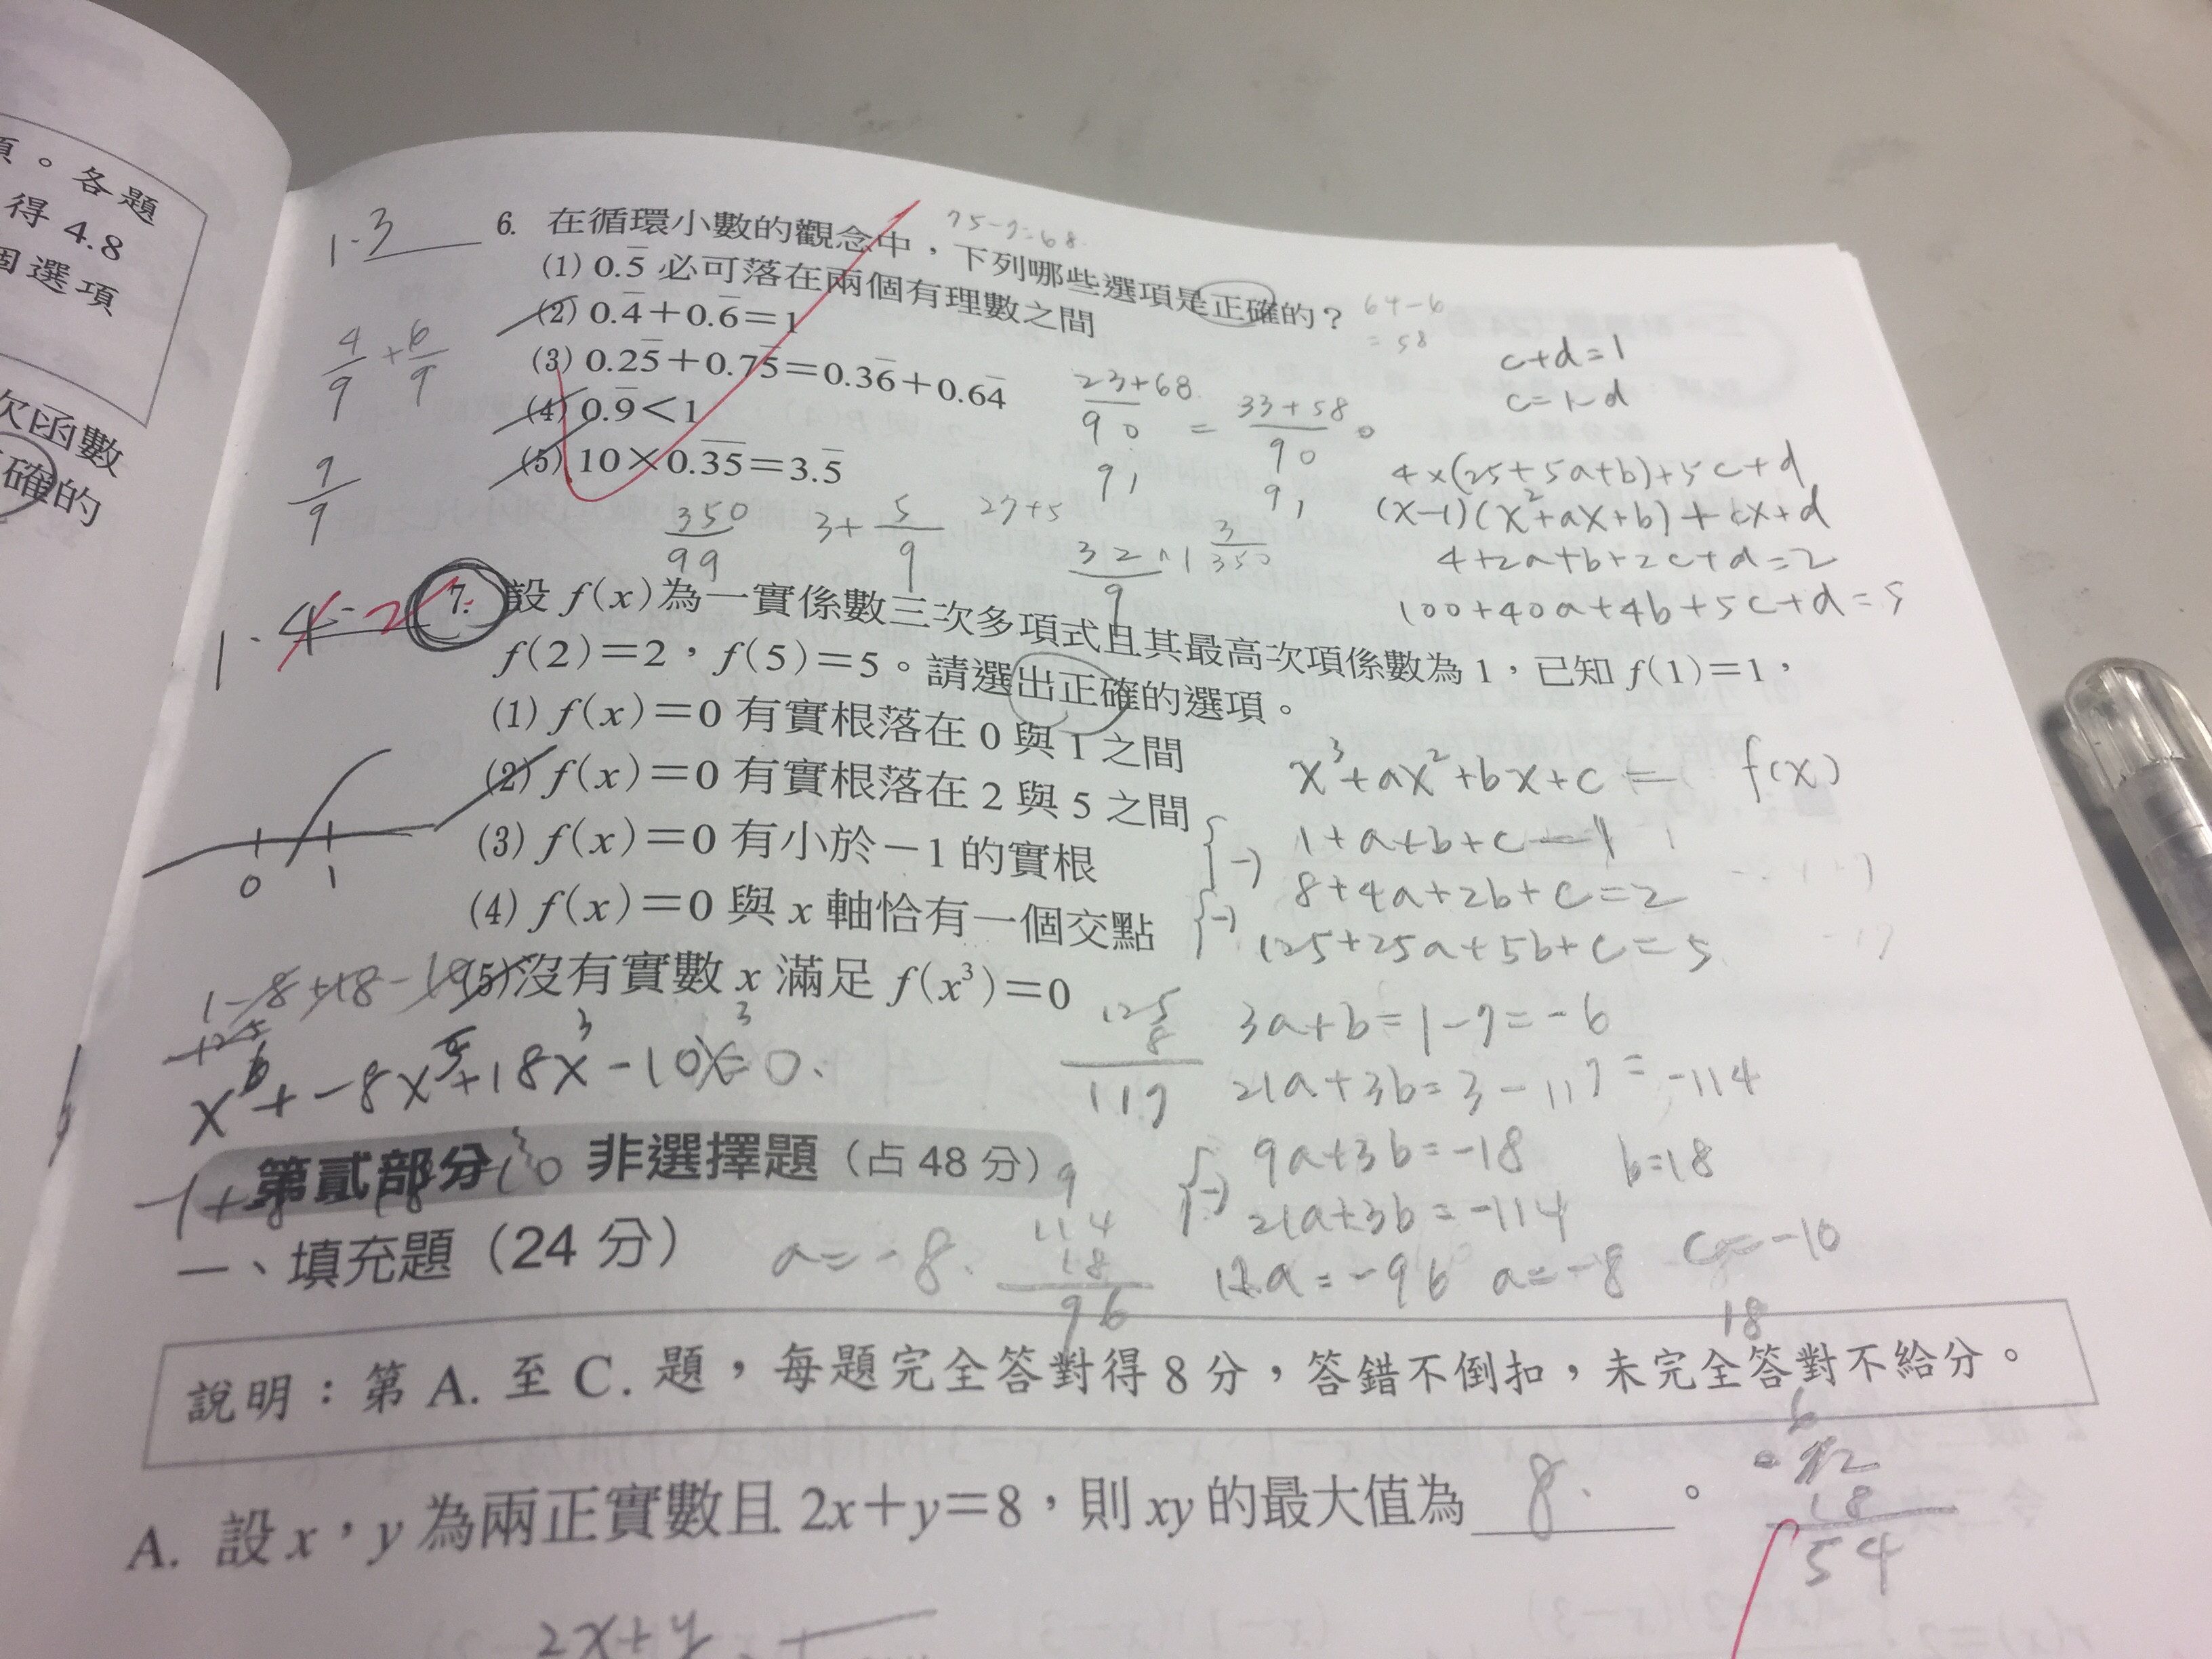 頁。各題
得 4.8
固選項
欠函數
確的
1.3
6. 在循環小數的觀念中，下列哪些選項是正確的？
75-7=68
(1) 0.5̅ 必可落在兩個有理數之間
(2) 0.4̅＋0.6̅＝1
64-6
=58
(3) 0.25̅＋0.75̅＝0.36̅＋0.64̅
(4) 0.9̅＜1
(5) 10×0.3̅5̅＝3.5̅
4/9+6/9
9/9
23+68/90=33+58/90
91
91
350/99
3+5/9
27+5
32/9
3
350
c+d=1
c=1-d
4×(25+5a+b)+5c+d
(x-1)(x²+ax+b)+cx+d
4+2a+b+2c+d=2
100+40a+4b+5c+d=5
7. 設 f(x)為一實係數三次多項式且其最高次項係數為 1，已知 f(1)＝1，
f(2)＝2，f(5)＝5。請選出正確的選項。
(1) f(x)＝0 有實根落在 0 與 1 之間
(2) f(x)＝0 有實根落在 2 與 5 之間
(3) f(x)＝0 有小於－1 的實根
(4) f(x)＝0 與 x 軸恰有一個交點
(5) 沒有實數 x 滿足 f(x³)＝0
0 1
x³+ax²+bx+c= f(x)
1+a+b+c=1
8+4a+2b+c=2
125+25a+5b+c=5
125
8
117
3a+b=1-7=-6
21a+3b=3-117=-114
9a+3b=-18
b=18
21a+3b=-114
12a=-96 a=-8
c=-10
a=-8.
114
18
96
第貳部分 非選擇題（占 48 分）
一、填充題（24 分）
18
說明：第 A. 至 C. 題，每題完全答對得 8 分，答錯不倒扣，未完全答對不給分。
A. 設 x，y 為兩正實數且 2x＋y＝8，則 xy 的最大值為 8 。
18
54
2x+y